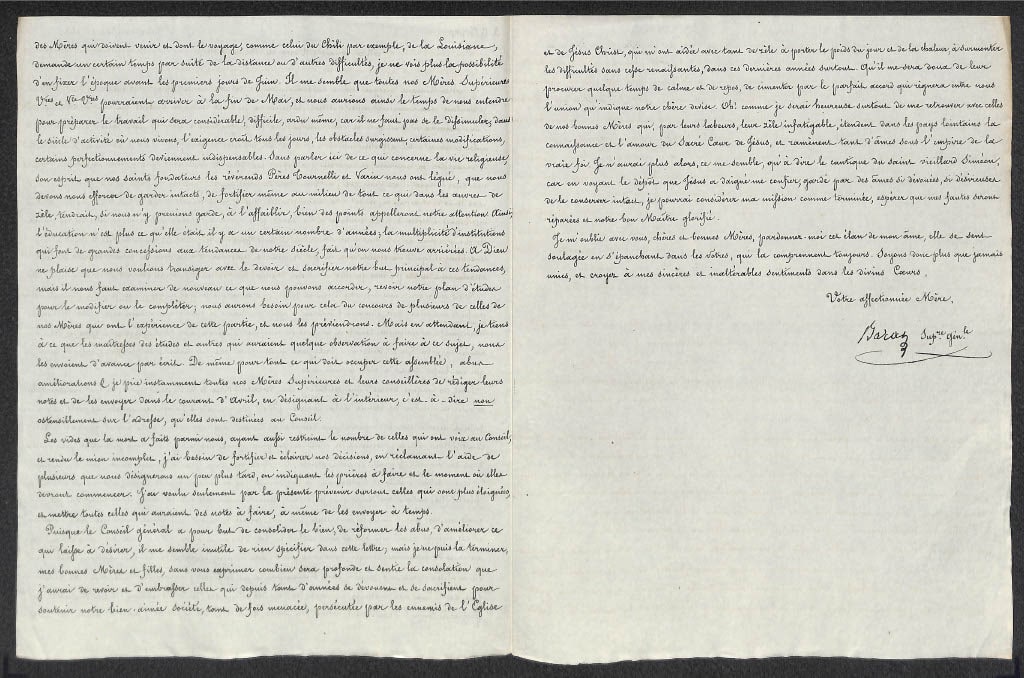 des Mères qui doivent venir et dont le voyage, comme celui du Chili par exemple, de la Louisiane,
demande un certain temps par suite de la distance ou d'autres difficultés, je ne vois plus la possibilité
d'en fixer l'époque avant les premiers jours de Juin. Il me semble que toutes nos Mères Supérieures
Vres et Vce-Vres pourraient arriver à la fin de Mai, et nous aurions ainsi le temps de nous entendre
pour préparer le travail qui sera considérable, difficile, ardu même, car il ne faut pas se le dissimuler, dans
le siècle d'activité où nous vivons, l'exigence croît tous les jours, les obstacles surgissent, certaines modifications,
certains perfectionnements deviennent indispensables. Sans parler ici de ce qui concerne la vie religieuse,
son esprit que nos saints fondateurs les révérends Pères Tournelly et Varin nous ont légué, que nous
devons nous efforcer de garder intacts, de fortifier même au milieu de tout ce qui dans les œuvres de
zèle, tendrait, si nous n'y prenions garde, à l'affaiblir, bien des points appelleront notre attention. Ainsi,
l'éducation n'est plus ce qu'elle était il y a un certain nombre d'années; la multiplicité d'institutions
qui font de grandes concessions aux tendances de notre siècle, fait qu'on nous trouve arriérées. A Dieu
ne plaise que nous voulions transiger avec le devoir et sacrifier notre but principal à ces tendances,
mais il nous faut examiner de nouveau ce que nous pouvons accorder, revoir notre plan d'études
pour le modifier ou le compléter; nous aurons besoin pour cela du concours de plusieurs de celles de
nos Mères qui ont l'expérience de cette partie, et nous les préviendrons. Mais en attendant, je tiens
à ce que les maîtresses des études et autres qui auraient quelque observation à faire à ce sujet, nous
les envoient d'avance par écrit. De même pour tout ce qui doit occuper cette assemblée, abus
améliorations &, je prie instamment toutes nos Mères Supérieures et leurs conseillères de rédiger leurs
notes et de les envoyer dans le courant d'Avril, en désignant à l'intérieur, c'est-à-dire non
ostensiblement sur l'adresse, qu'elles sont destinées au Conseil.
Les vides que la mort a faits parmi nous, ayant aussi restreint le nombre de celles qui ont voix au Conseil,
et rendu le mien incomplet, j'ai besoin de fortifier et éclairer nos décisions, en réclamant l'aide de
plusieurs que nous désignerons un peu plus tard, en indiquant les prières à faire et le moment où elles
devront commencer. J'ai voulu seulement par la présente prévenir surtout celles qui sont plus éloignées,
et mettre toutes celles qui auraient des notes à faire, à même de les envoyer à temps.
Puisque le Conseil général a pour but de consolider le bien, de réformer les abus, d'améliorer ce
qui laisse à désirer, il me semble inutile de rien spécifier dans cette lettre; mais je ne puis la terminer,
mes bonnes Mères et filles, sans vous exprimer combien sera profonde et sentie la consolation que
j'aurai de revoir et d'embrasser celles qui depuis tant d'années se dévouent et se sacrifient pour
soutenir notre bien-aimée société, tant de fois menacée, persécutée par les ennemis de l'Eglise
et de Jésus Christ, qui m'ont aidée avec tant de zèle à porter le poids du jour et de la chaleur, à surmonter
les difficultés sans cesse renaissantes, dans ces dernières années surtout. Qu'il me sera doux de leur
procurer quelque temps de calme et de repos, de cimenter par le parfait accord qui règnera entre nous
l'union qu'indique notre chère devise. Oh! comme je serai heureuse surtout de me retrouver avec celles
de nos bonnes Mères qui, par leurs labeurs, leur zèle infatigable, étendent dans les pays lointains la
connaissance et l'amour du Sacré Cœur de Jésus, et ramènent tant d'âmes sous l'empire de la
vraie foi. Je n'aurai plus alors, ce me semble, qu'à dire le cantique du saint vieillard Siméon,
car en voyant le dépôt que Jésus a daigné me confier, gardé par des âmes si dévouées, si désireuses
de le conserver intact, je pourrai considérer ma mission comme terminée, espérer que mes fautes seront
réparées et notre bon Maître glorifié.
Je m'oublie avec vous, chères et bonnes Mères, pardonnez-moi cet élan de mon âme, elle se sent
soulagée en s'épanchant dans les vôtres, qui la comprennent toujours. Soyons donc plus que jamais
unies, et croyez à mes sincères et inaltérables sentiments dans les divins Cœurs.
Votre affectionnée Mère,
Barat Supre Génle